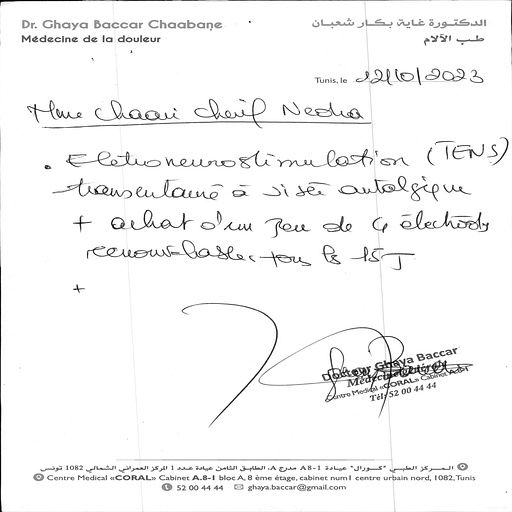 Dr. Ghaya Baccar Chaabane
الدكتورة غاية بكار شعبان
Médecine de la douleur
طب الآلام
Tunis, le 12/10/2023
Mme Chaari Cherif Nedra
. Eletroneurostimulation (TENS)
transcutané à visée antalgique
+ achat d'un jeu de 4 électrods
renouvlables tous ls 15J
+
Docteur Ghaya Baccar
Centre Medical «CORAL» Cabinet A8-1
Tél: 52 00 44 44
المركز الطبي "كورال" عيادة A8-1 مدرج A، الطابق الثامن عيادة عدد 1 المركز العمراني الشمالي 1082 تونس
Centre Medical «CORAL» Cabinet A.8-1 bloc A, 8 ème étage, cabinet num1 centre urbain nord, 1082, Tunis
52 00 44 44 ghaya.baccar@gmail.com